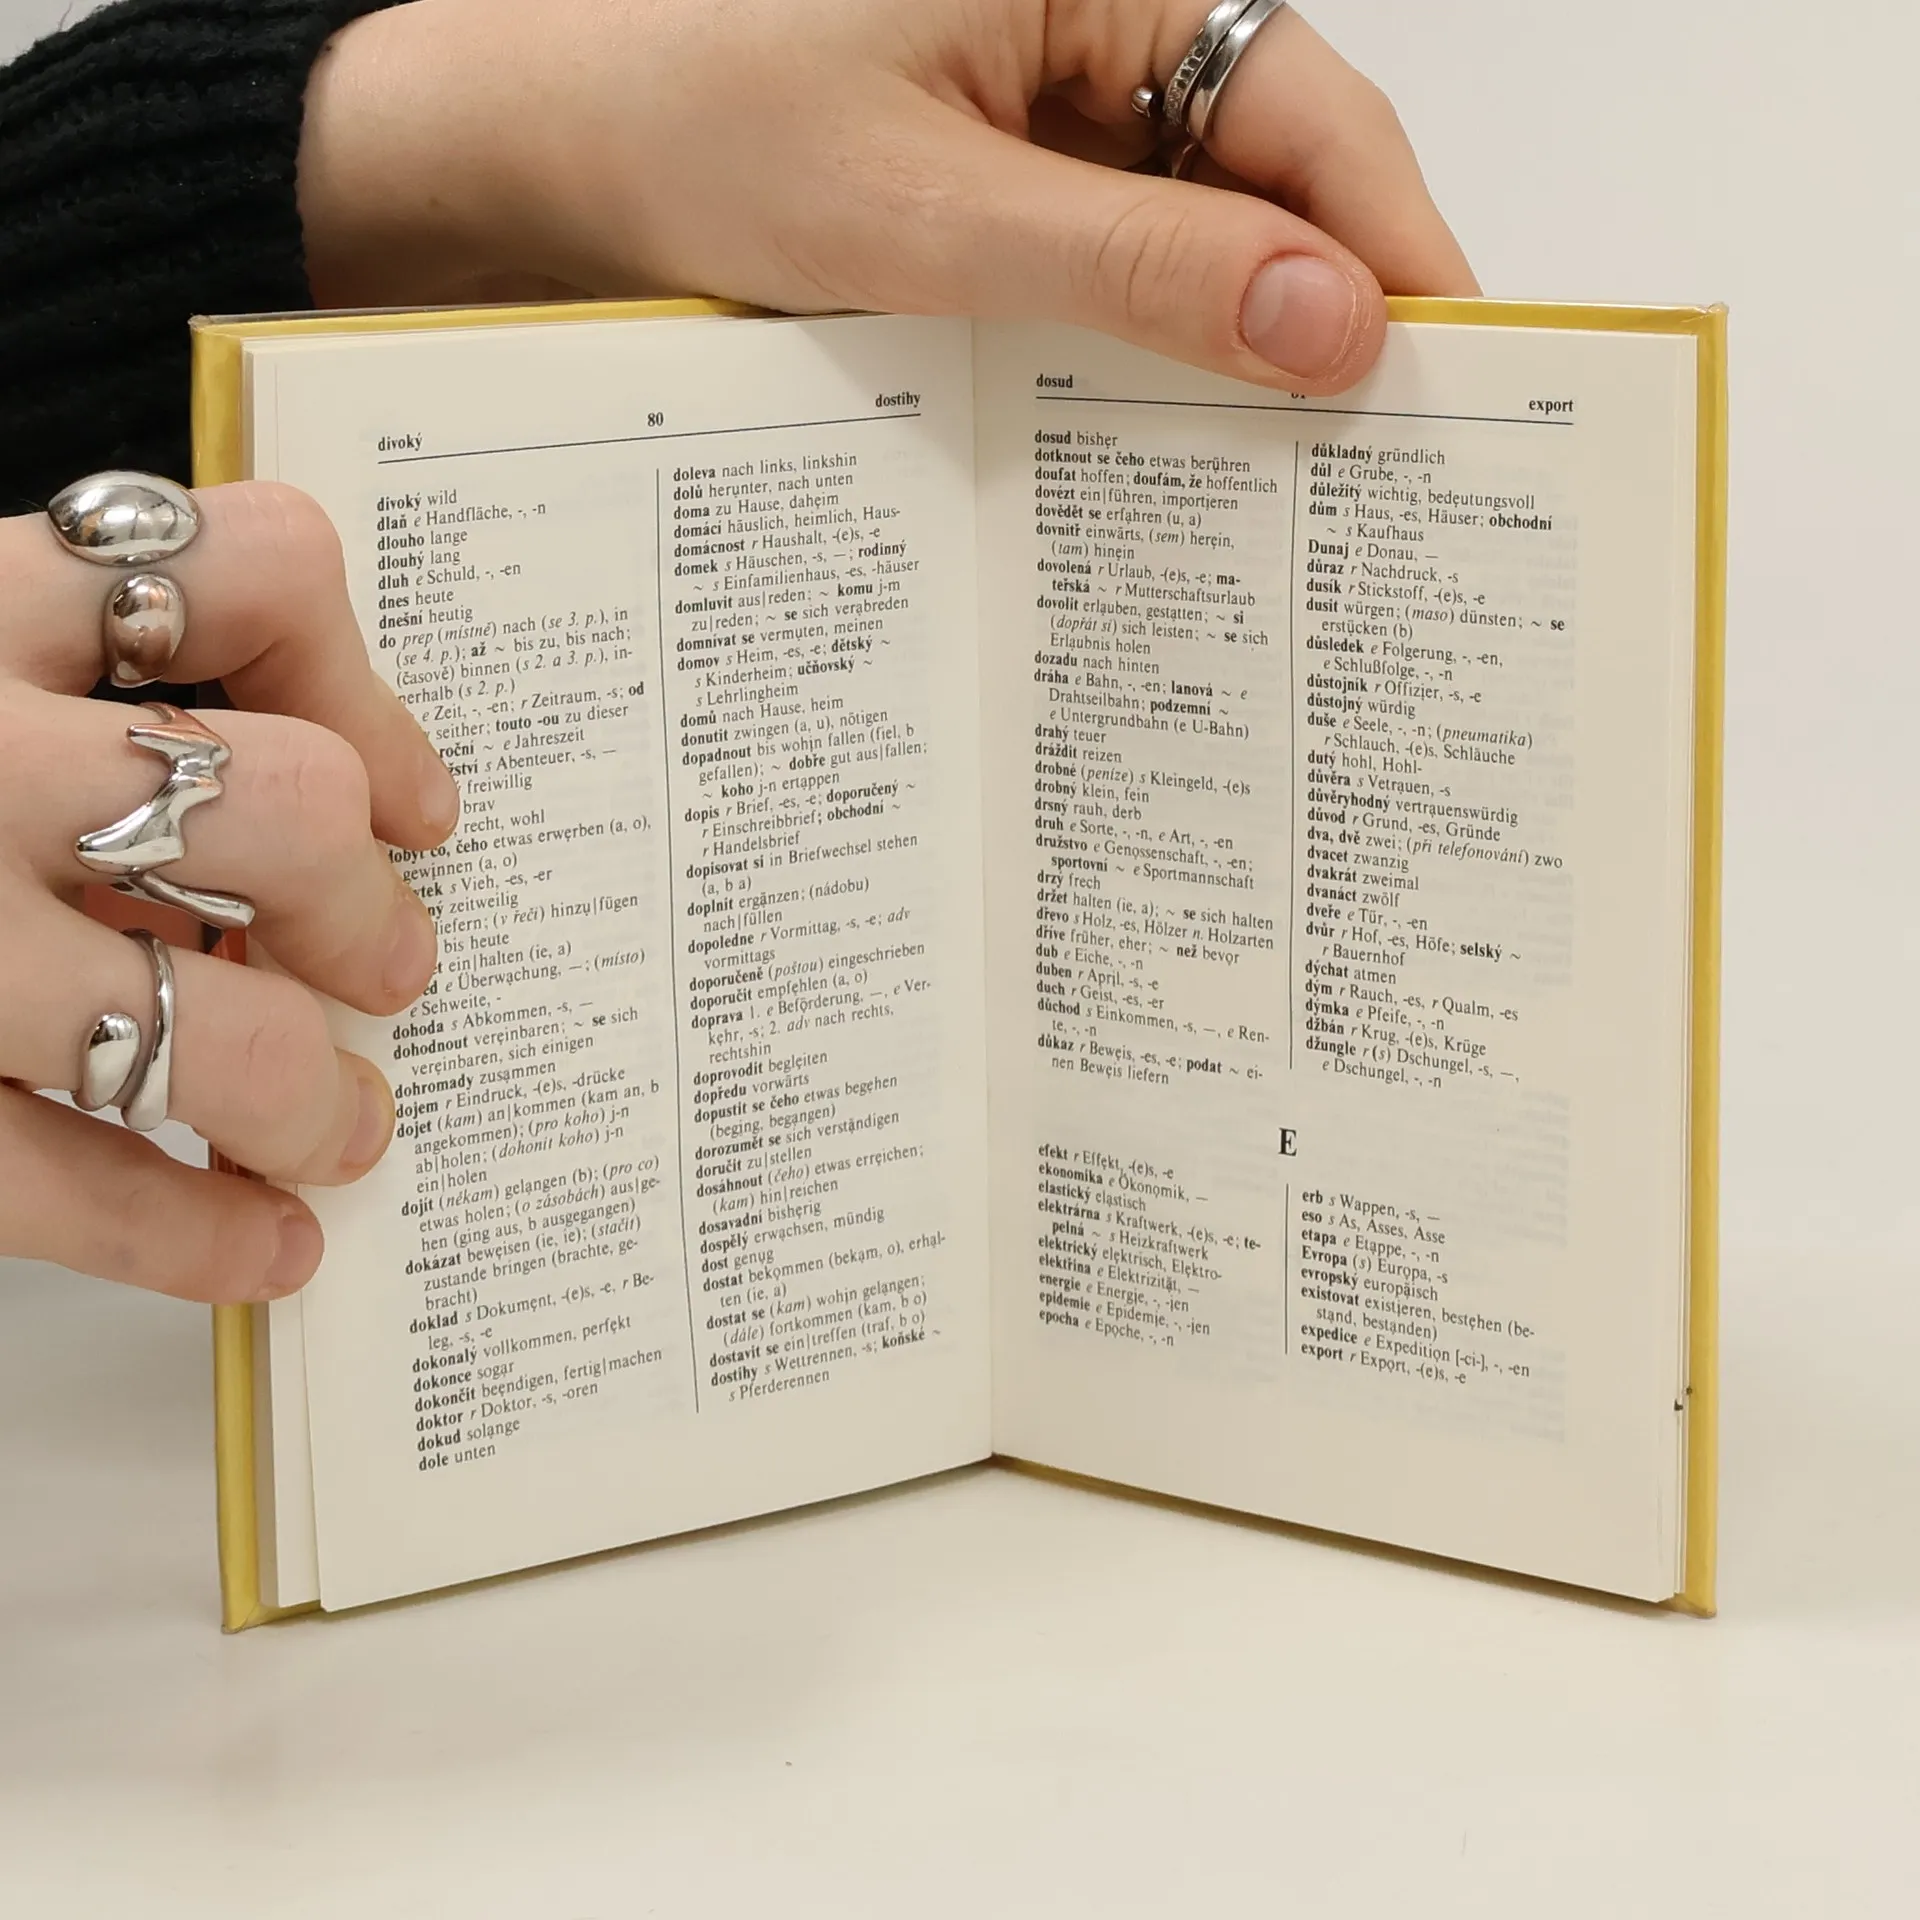 divoký
80
dostihy
divoký wild
dlaň e Handfläche, -, -n
dlouho lange
dlouhý lang
dluh e Schuld, -, -en
dnes heute
dnešní heutig
do prep (místně) nach (se 3. p.), in
(se 4. p.); až ~ bis zu, bis nach;
(časově) binnen (s 2. a 3. p.), in-
nerhalb (s 2. p.)
e Zeit, -, -en; r Zeitraum, -s; od
seither; touto -ou zu dieser
roční ~ e Jahreszeit
s Abenteuer, -s, —
freiwillig
brav
recht, wohl
co, čeho etwas erwerben (a, o),
gewinnen (a, o)
s Vieh, -es, -er
zeitweilig
liefern; (v řeči) hinzu|fügen
bis heute
ein|halten (ie, a)
e Überwachung, —; (místo)
e Sehweite, -
dohoda s Abkommen, -s, —
dohodnout vereinbaren; ~ se sich
vereinbaren, sich einigen
dohromady zusammen
dojem r Eindruck, -(e)s, -drücke
dojet (kam) an|kommen (kam an, b
angekommen); (pro koho) j-n
ab|holen; (dohonit koho) j-n
ein|holen
dojít (někam) gelangen (b); (pro co)
etwas holen; (o zásobách) aus|ge-
hen (ging aus, b ausgegangen)
dokázat beweisen (ie, ie); (stačit)
zustande bringen (brachte, ge-
bracht)
doklad s Dokument, -(e)s, -e, r Be-
leg, -s, -e
dokonalý vollkommen, perfekt
dokonce sogar
dokončit beendigen, fertig|machen
doktor r Doktor, -s, -oren
dokud solange
dole unten
doleva nach links, linkshin
dolů herunter, nach unten
doma zu Hause, daheim
domácí häuslich, heimlich, Haus-
domácnost r Haushalt, -(e)s, -e
domek s Häuschen, -s, —; rodinný
~ s Einfamilienhaus, -es, -häuser
domluvit aus|reden; ~ komu j-m
zu|reden; ~ se sich verabreden
domnívat se vermuten, meinen
domov s Heim, -es, -e; dětský ~
s Kinderheim; učňovský ~
s Lehrlingheim
domů nach Hause, heim
donutit zwingen (a, u), nötigen
dopadnout bis wohin fallen (fiel, b
gefallen); ~ dobře gut aus|fallen;
~ koho j-n ertappen
dopis r Brief, -es, -e; doporučený ~
r Einschreibbrief; obchodní ~
r Handelsbrief
dopisovat si in Briefwechsel stehen
(a, b a)
doplnit ergänzen; (nádobu)
nach|füllen
dopoledne r Vormittag, -s, -e; adv
vormittags
doporučeně (poštou) eingeschrieben
doporučit empfehlen (a, o)
doprava 1. e Beförderung, —, e Ver-
kehr, -s; 2. adv nach rechts,
rechtshin
doprovodit begleiten
dopředu vorwärts
dopustit se čeho etwas begehen
(beging, begangen)
dorozumět se sich verständigen
doručit zu|stellen
dosáhnout (čeho) etwas erreichen;
(kam) hin|reichen
dosavadní bisherig
dospělý erwachsen, mündig
dost genug
dostat bekommen (bekam, o), erhal-
ten (ie, a)
dostat se (kam) wohin gelangen;
(dále) fortkommen (kam, b o)
dostavit se ein|treffen (traf, b o)
dostihy s Wettrennen, -s; koňské ~
s Pferderennen
dosud
export
dosud bisher
dotknout se čeho etwas berühren
doufat hoffen; doufám, že hoffentlich
dovézt ein|führen, importieren
dovědět se erfahren (u, a)
dovnitř einwärts, (sem) herein,
(tam) hinein
dovolená r Urlaub, -(e)s, -e; ma-
teřská ~ r Mutterschaftsurlaub
dovolit erlauben, gestatten; ~ si
(dopřát si) sich leisten; ~ se sich
Erlaubnis holen
dozadu nach hinten
dráha e Bahn, -, -en; lanová ~ e
Drahtseilbahn; podzemní ~
e Untergrundbahn (e U-Bahn)
drahý teuer
dráždit reizen
drobné (peníze) s Kleingeld, -(e)s
drobný klein, fein
drsný rauh, derb
druh e Sorte, -, -n, e Art, -, -en
družstvo e Genossenschaft, -, -en;
sportovní ~ e Sportmannschaft
drzý frech
držet halten (ie, a); ~ se sich halten
dřevo s Holz, -es, Hölzer n. Holzarten
dříve früher, eher; ~ než bevor
dub e Eiche, -, -n
duben r April, -s, -e
duch r Geist, -es, -er
důchod s Einkommen, -s, —, e Ren-
te, -, -n
důkaz r Beweis, -es, -e; podat ~ ei-
nen Beweis liefern
důkladný gründlich
důl e Grube, -, -n
důležitý wichtig, bedeutungsvoll
dům s Haus, -es, Häuser; obchodní
~ s Kaufhaus
Dunaj e Donau, —
důraz r Nachdruck, -s
dusík r Stickstoff, -(e)s, -e
dusit würgen; (maso) dünsten; ~ se
ersticken (b)
důsledek e Folgerung, -, -en,
e Schlußfolge, -, -n
důstojník r Offizier, -s, -e
důstojný würdig
duše e Seele, -, -n; (pneumatika)
r Schlauch, -(e)s, Schläuche
dutý hohl, Hohl-
důvěra s Vetrauen, -s
důvěryhodný vertrauenswürdig
důvod r Grund, -es, Gründe
dva, dvě zwei; (při telefonování) zwo
dvacet zwanzig
dvakrát zweimal
dvanáct zwölf
dveře e Tür, -, -en
dvůr r Hof, -es, Höfe; selský ~
r Bauernhof
dýchat atmen
dým r Rauch, -es, r Qualm, -es
dýmka e Pfeife, -, -n
džbán r Krug, -(e)s, Krüge
džungle r (s) Dschungel, -s, —,
e Dschungel, -, -n
E
efekt r Effekt, -(e)s, -e
ekonomika e Ökonomik, —
elastický elastisch
elektrárna s Kraftwerk, -(e)s, -e; te-
pelná ~ s Heizkraftwerk
elektrický elektrisch, Elektro-
elektřina e Elektrizität, —
energie e Energie, -, -ien
epidemie e Epidemie, -, -ien
epocha e Epoche, -, -n
erb s Wappen, -s, —
eso s As, Asses, Asse
etapa e Etappe, -, -n
Evropa (s) Europa, -s
evropský europäisch
existovat existieren, bestehen (be-
stand, bestanden)
expedice e Expedition [-ci-], -, -en
export r Export, -(e)s, -e